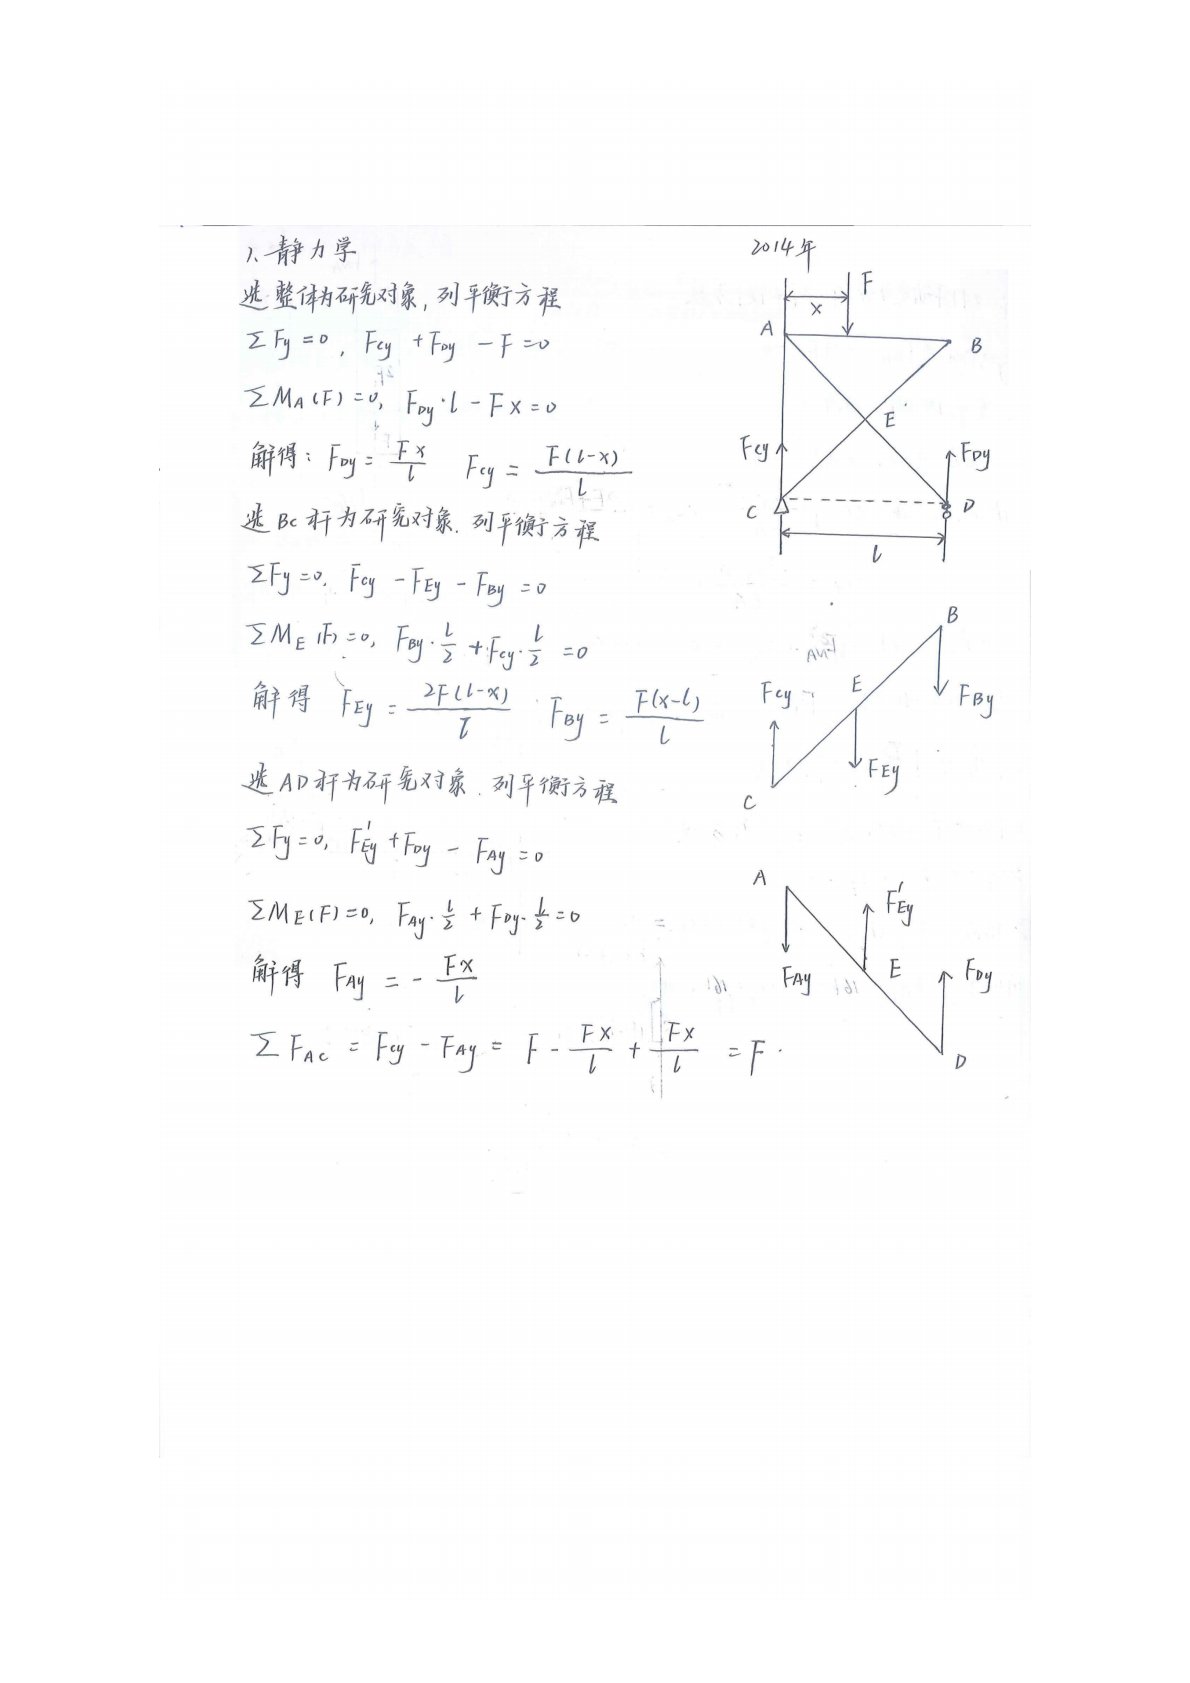 1、静力学
2014年
选整体为研究对象,列平衡方程
ΣFy=0, Fcy+FDy-F=0
ΣMA(F)=0, FDy·l-Fx=0
解得: FDy=Fx/l Fcy=F(l-x)/l
选BC杆为研究对象.列平衡方程
ΣFy=0, Fcy-FEy-FBy=0
ΣME(F)=0, FBy·l/2+Fcy·l/2=0
解得 FEy=2F(l-x)/l FBy=F(x-l)/l
选AD杆为研究对象.列平衡方程
ΣFy=0, F'Ey+FDy-FAy=0
ΣME(F)=0, FAy·l/2+FDy·l/2=0
解得 FAy=-Fx/l
ΣFAC=Fcy-FAy=F-Fx/l+Fx/l=F.
F
x
A
B
E
Fcy
FDy
C
D
l
B
Fcy
E
FBy
FEy
C
A
F'Ey
FAy
E
FDy
D